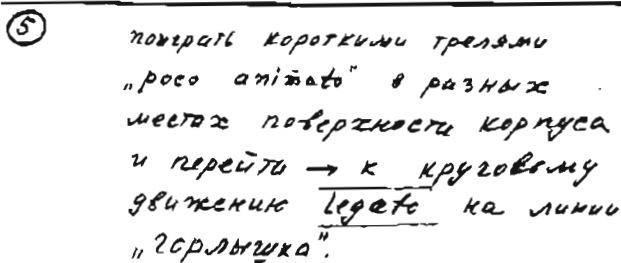 5
поиграть короткими трелями
„poco animato" в разных
местах поверхности корпуса
и перейти → к круговому
движению legato на линии
„горлышка".